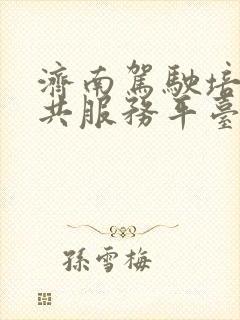 濟南駕駛培
共服務平臺
孫雪梅